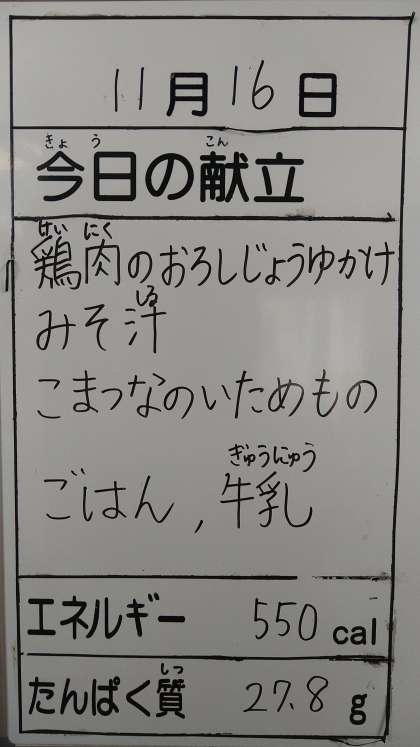 11月16日
きょう こん
今日の献立
けい にく
鶏肉のおろしじょうゆかけ
しる
みそ汁
こまつなのいためもの
ぎゅうにゅう
ごはん,牛乳
エネルギー 550 cal
しつ
たんぱく質 27.8 g